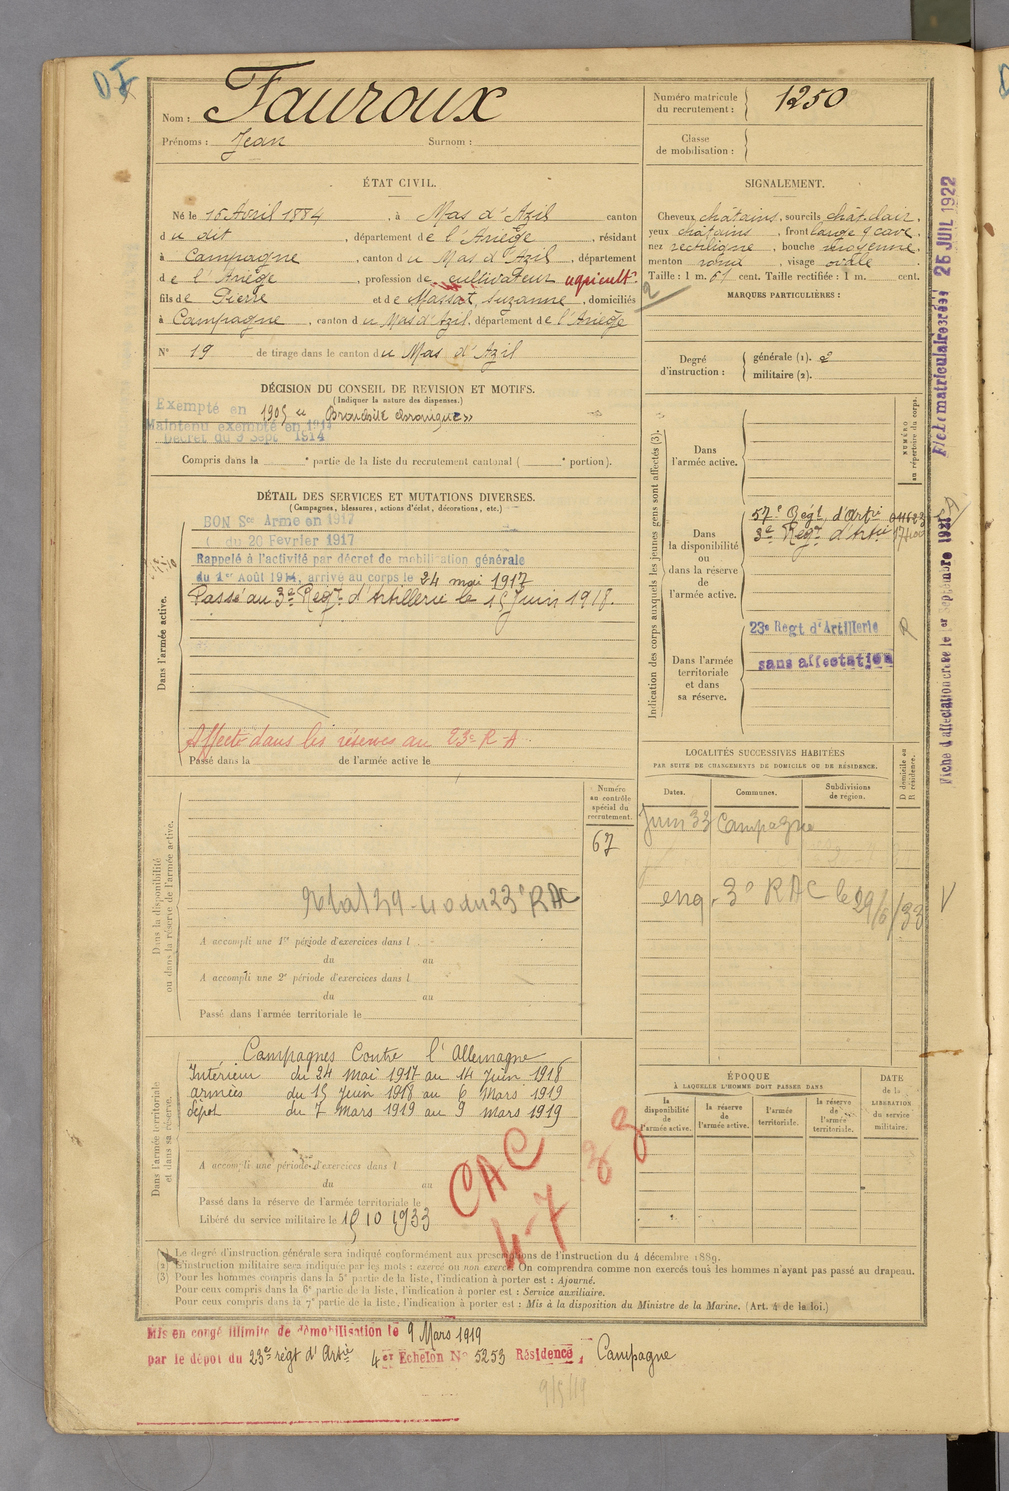 Nom : Fauroux
Prénoms : Jean Surnom :
Numéro matricule
du recrutement : 1250
Classe
de mobilisation :
ÉTAT CIVIL.
Né le 16 Avril 1884, à Mas d'Azil canton
du dit, département de l'Ariège, résidant
à Campagne, canton du Mas d'Azil, département
de l'Ariège, profession de cultivateur agricult.
fils de Pierre et de Massat, Suzanne, domiciliés
à Campagne, canton du Mas d'Azil, département de l'Ariège
N° 19 de tirage dans le canton du Mas d'Azil
SIGNALEMENT.
Cheveux châtains, sourcils chât. clair,
yeux châtains, front large
nez rectiligne, bouche moyenne,
menton rond, visage ovale
Taille : 1 m. 61 cent. Taille rectifiée : 1 m. cent.
2
MARQUES PARTICULIÈRES :
Degré
d'instruction :
générale (1). 2
militaire (2).
DÉCISION DU CONSEIL DE REVISION ET MOTIFS.
(Indiquer la nature des dispenses.)
Exempté en 1905 « Bronchite chronique »
Maintenu exempté en 1914
Décret du 9 Sept 1914
Compris dans la e partie de la liste du recrutement cantonal ( e portion).
DÉTAIL DES SERVICES ET MUTATIONS DIVERSES.
(Campagnes, blessures, actions d'éclat, décorations, etc.)
BON Sce Armé en 1917
( du 20 Fevrier 1917
Rappelé à l'activité par décret de mobilisation générale
du 1er Août 1914, arrivé au corps le 24 mai 1917
Passé au 3e Régt d'Artillerie le 15 Juin 1918.
Dans l'armée active.
Affecté dans les réserves au 23e R.A.
Passé dans la de l'armée active le
Indication des corps auxquels les jeunes gens sont affectés (3).
NUMÉRO
au répertoire du corps.
Dans
l'armée active.
Dans
la disponibilité
ou
dans la réserve
de
l'armée active.
57e Régt d'Artie
3e Régt d'Artie
Dans l'armée
territoriale
et dans
sa réserve.
23e Regt d'Artillerie
R
sans affectation
Fiche matriculaire créée 25 JUIL 1922
Fiche d'affectation créée le 1er Septembre 1921
LOCALITÉS SUCCESSIVES HABITÉES
PAR SUITE DE CHANGEMENTS DE DOMICILE OU DE RÉSIDENCE.
Dates. Communes. Subdivisions
de région.
D domicile ou
R résidence.
Juin 33 Campagne
3e RAC le 29/6/33
Dans la disponibilité
ou dans la réserve de l'armée active.
Numéro
au contrôle
spécial du
recrutement.
67
du 23e RAC
A accompli une 1re période d'exercices dans l
du au
A accompli une 2e période d'exercices dans l
du au
Passé dans l'armée territoriale le
Dans l'armée territoriale
et dans sa réserve.
Campagnes Contre l'Allemagne
Intérieur du 24 Mai 1917 au 14 Juin 1918
armées du 15 Juin 1918 au 6 Mars 1919
dépôt du 7 Mars 1919 au 9 mars 1919
A accompli une période d'exercices dans l
du au
Passé dans la réserve de l'armée territoriale le
Libéré du service militaire le 15 10 1933
CAC
4-7
ÉPOQUE
À LAQUELLE L'HOMME DOIT PASSER DANS
la
disponibilité
de
l'armée active.
la réserve
de
l'armée active.
l'armée
territoriale.
la réserve
de
l'armée
territoriale.
DATE
de la
LIBÉRATION
du service
militaire.
(1) Le degré d'instruction générale sera indiqué conformément aux prescriptions de l'instruction du 4 décembre 1889.
(2) L'instruction militaire sera indiquée par les mots : exercé ou non exercé. On comprendra comme non exercés tous les hommes n'ayant pas passé au drapeau.
(3) Pour les hommes compris dans la 5e partie de la liste, l'indication à porter est : Ajourné.
Pour ceux compris dans la 6e partie de la liste, l'indication à porter est : Service auxiliaire.
Pour ceux compris dans la 7e partie de la liste, l'indication à porter est : Mis à la disposition du Ministre de la Marine. (Art. 4 de la loi.)
Mis en congé illimité de démobilisation le 9 Mars 1919
par le dépôt du 23e régt d'Artie 4er Echelon No 5253 Résidence, Campagne